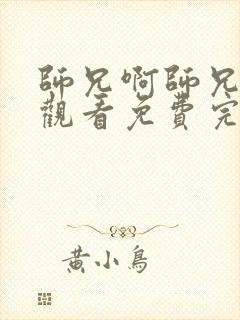 師兄啊師兄
觀看免費完
黃小鳥